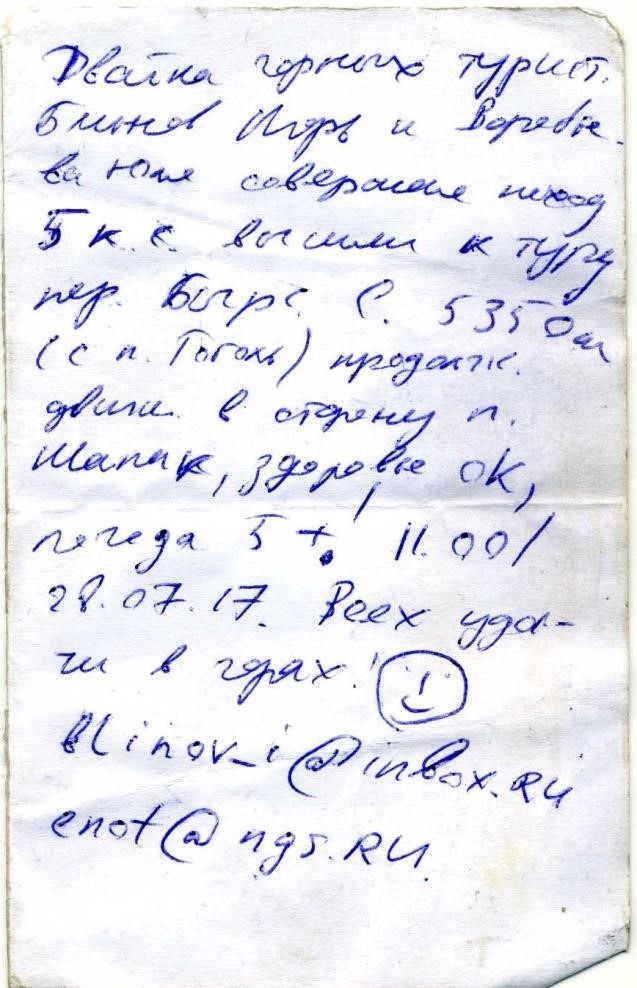 Двойка горных турист.
Блинов Игорь и Воробье-
ва Юля совершая поход
5 к.с. вышли к туру
пер. С. 5350 м
(с п. Гоголь) продолж.
движ. в сторону п.
Шапак, здоровье ОК,
погода 5+! 11.00/
28.07.17. Всех уда-
чи в горах!
blinov_i@inbox.RU
enot@ngs.RU